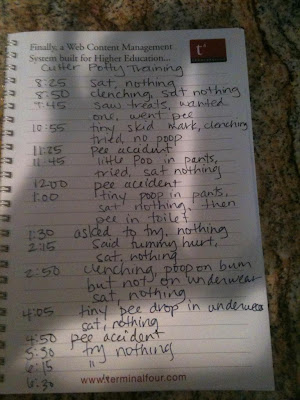 Finally, a Web Content Management
System built for Higher Education...
Cutter Potty Training
8:25 sat, nothing
8:50 clenching, sat nothing
9:45 saw treats, wanted
one, went pee
10:55 tiny skid mark, clenching
tried, no poop
11:25 pee accident
11:45 little poo in pants,
tried, sat nothing
12:00 pee accident
1:00 tiny poop in pants,
sat nothing, then
pee in toilet
1:30 asked to try, nothing
2:15 said tummy hurt,
sat, nothing
2:50 clenching, poop on bum
but not on underwear
sat, nothing
4:05 tiny pee drop in underwear
sat, nothing
4:50 pee accident
5:30 try nothing
6:15 "
6:30
www.terminalfour.com